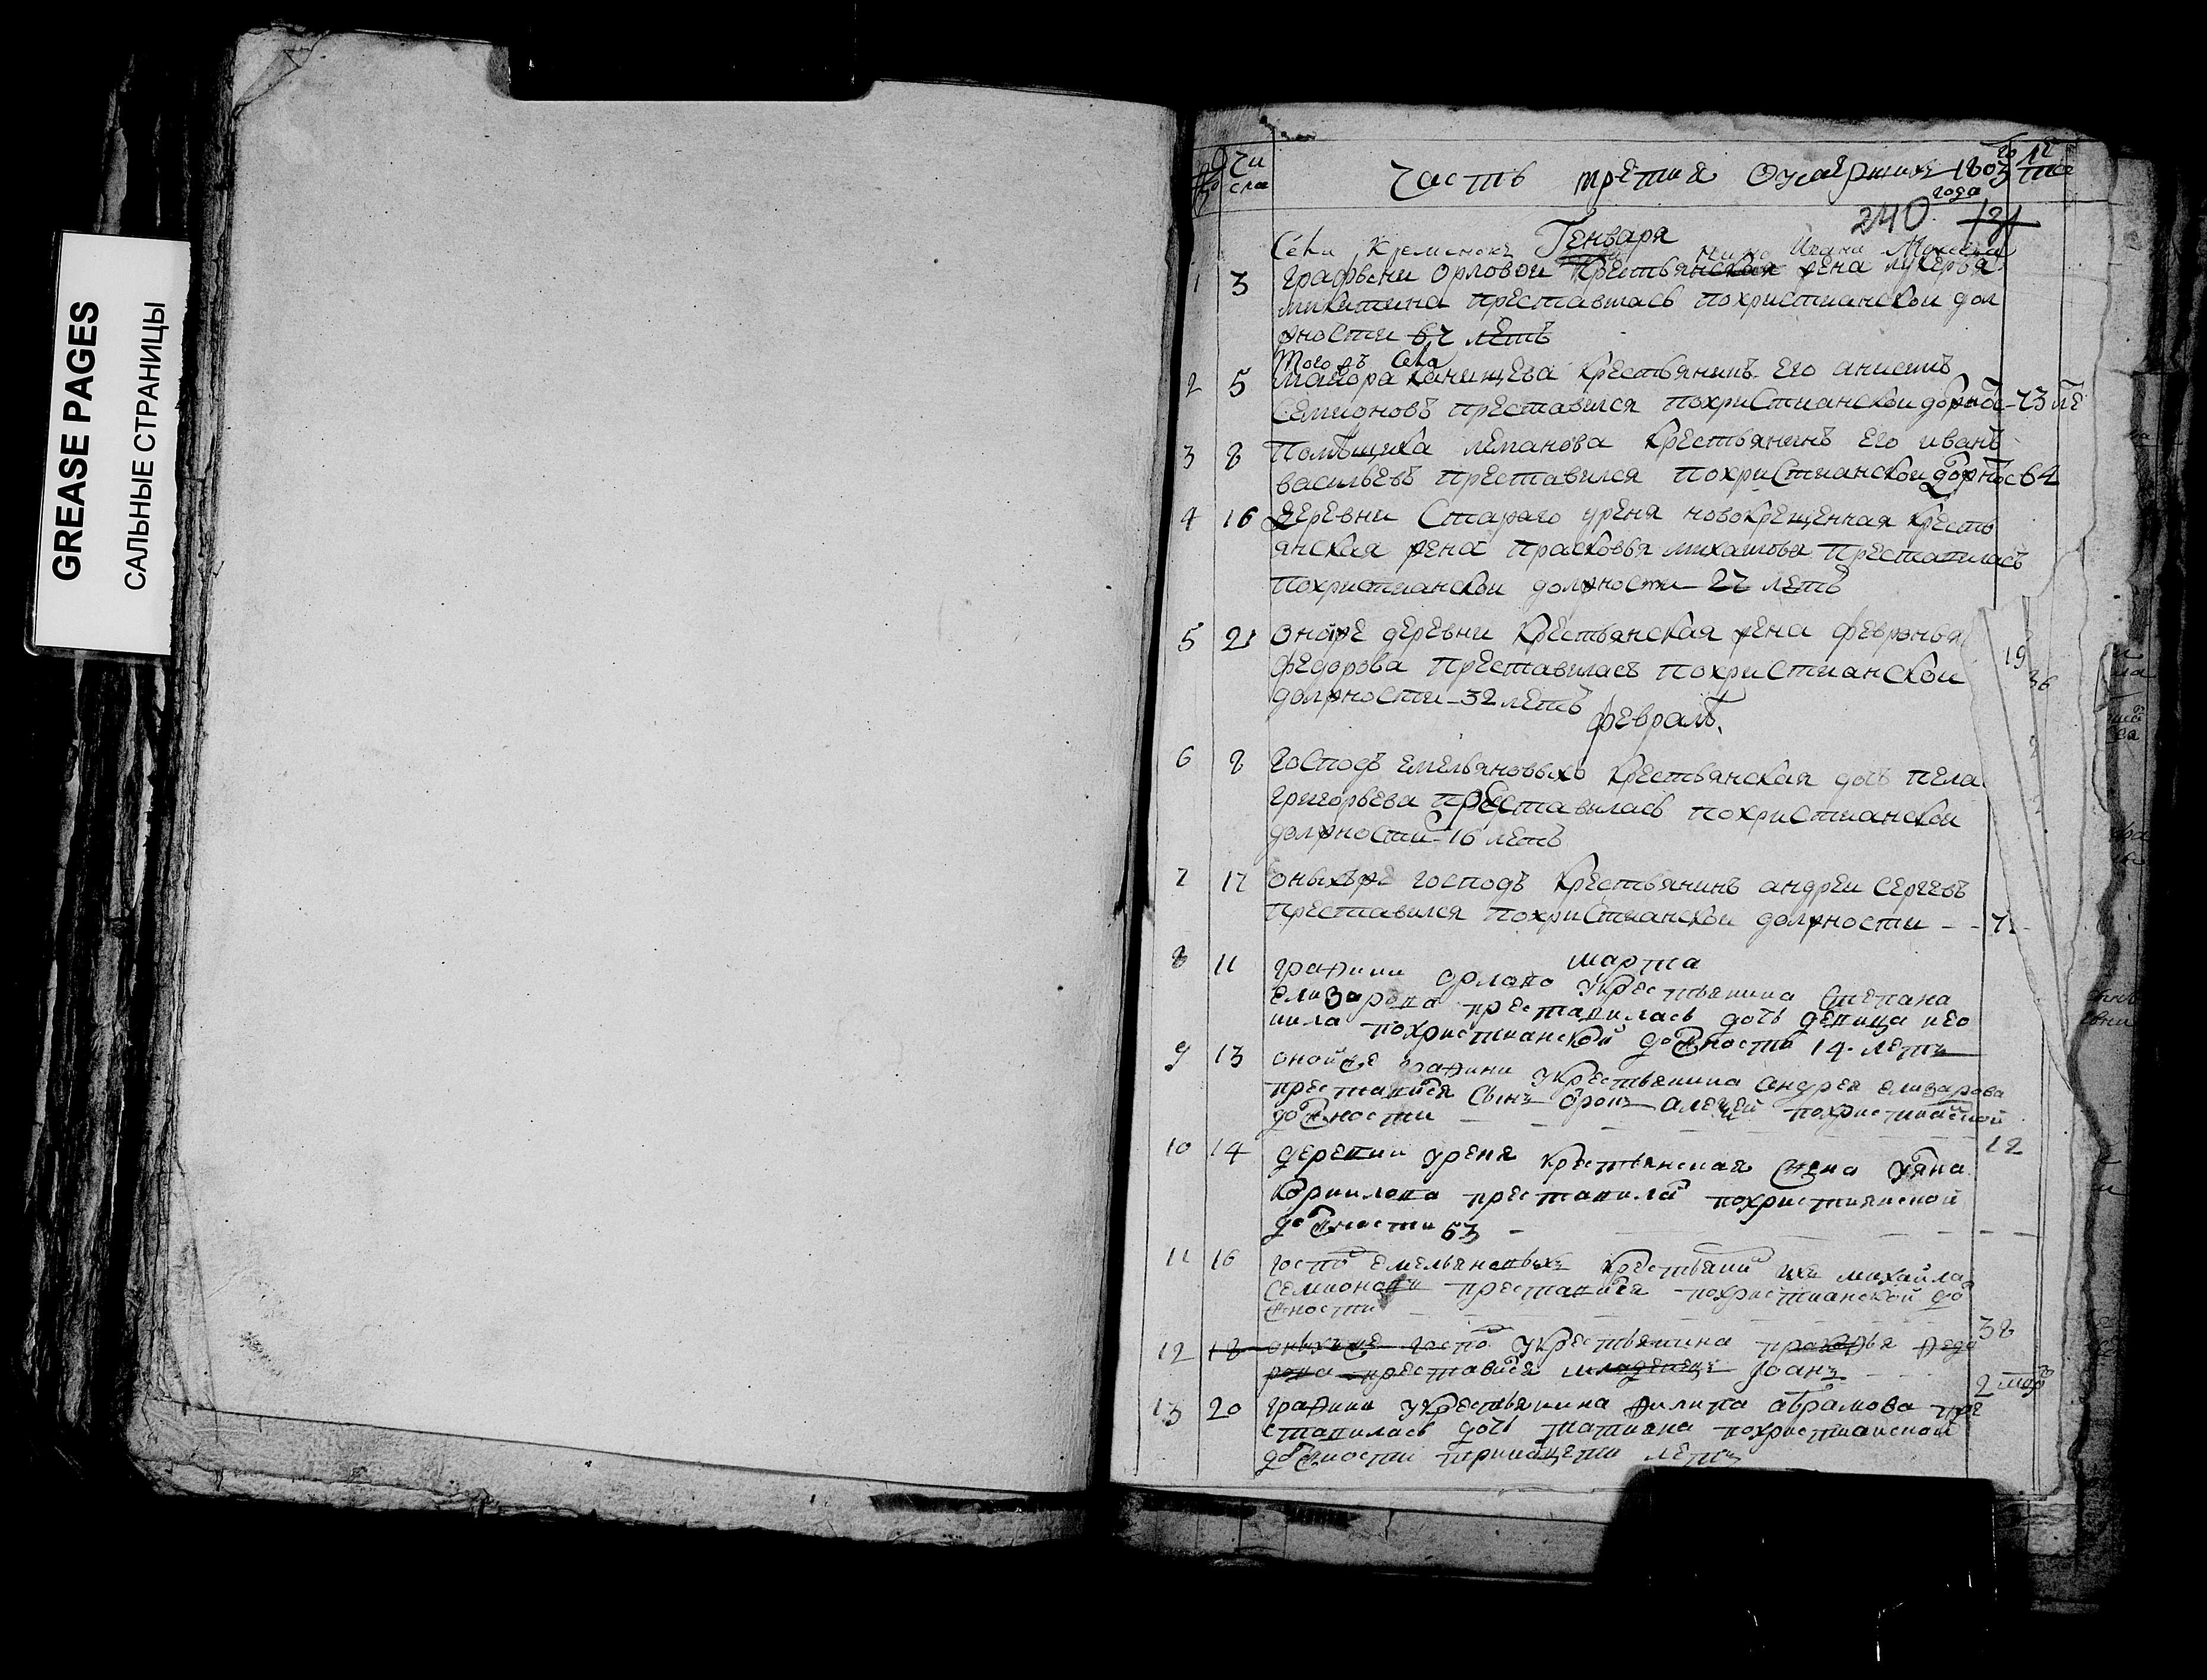 GREASE PAGES
САЛЬНЫЕ СТРАНИЦЫ
Чи
сла
часть третия Оумершихъ 1803 го
года
240 121
Генваря
Села Кременокъ Ивана Моисеева
1 3 графини Орловой крестьянская жена лукерья
никитина преставилась похристианской дол
жности 67 летъ
Того жъ Села
2 5 маиора Канищева крестьянинъ его анисимъ
Семионовъ преставился похристианской 73 ле
3 8 Помѣщика крестьянинъ его иванъ
васильевъ преставился похристианской 64
4 16 деревни Стараго уреня новокрещенная кресть
янская жена прасковья михаилова преставилась
похристианской должности 27 летъ
5 21 оной же деревни крестьянская жена февронья
федорова преставилась похристианской
должности 32 летъ
февраль
6 8 господъ емельяновыхъ крестьянская дочь пела
григорьева преставилась похристианской
должности 16 летъ
7 17 оныхъ же господъ крестьянинъ андреи Сергеевъ
преставился похристианской должности 7
марта
8 11 графини орлово укрестьянина Степана
елизарова преставилась дочь девица нео
нила похристианской должности 14 летъ
9 13 оной же графини укрестьянина андрея елизарова
преставися Сынъ алексей похристианской
должности 12
10 14 деревни уреня крестьянская жена уяна
Корнилова преставила похристиянской
должности 63
11 16 госпо емельяновыхъ крестьяни ихъ михаила
Семионовъ преставися похристианской до
жности 38
12 18 оныхъ же госпо укрестьянина прокофья федо
рова преставися младенецъ Iоанъ 2
13 20 графини укрестьянина филипа аврамова пре
ставилась дочь татияна похристианской
должности летъ
19
36